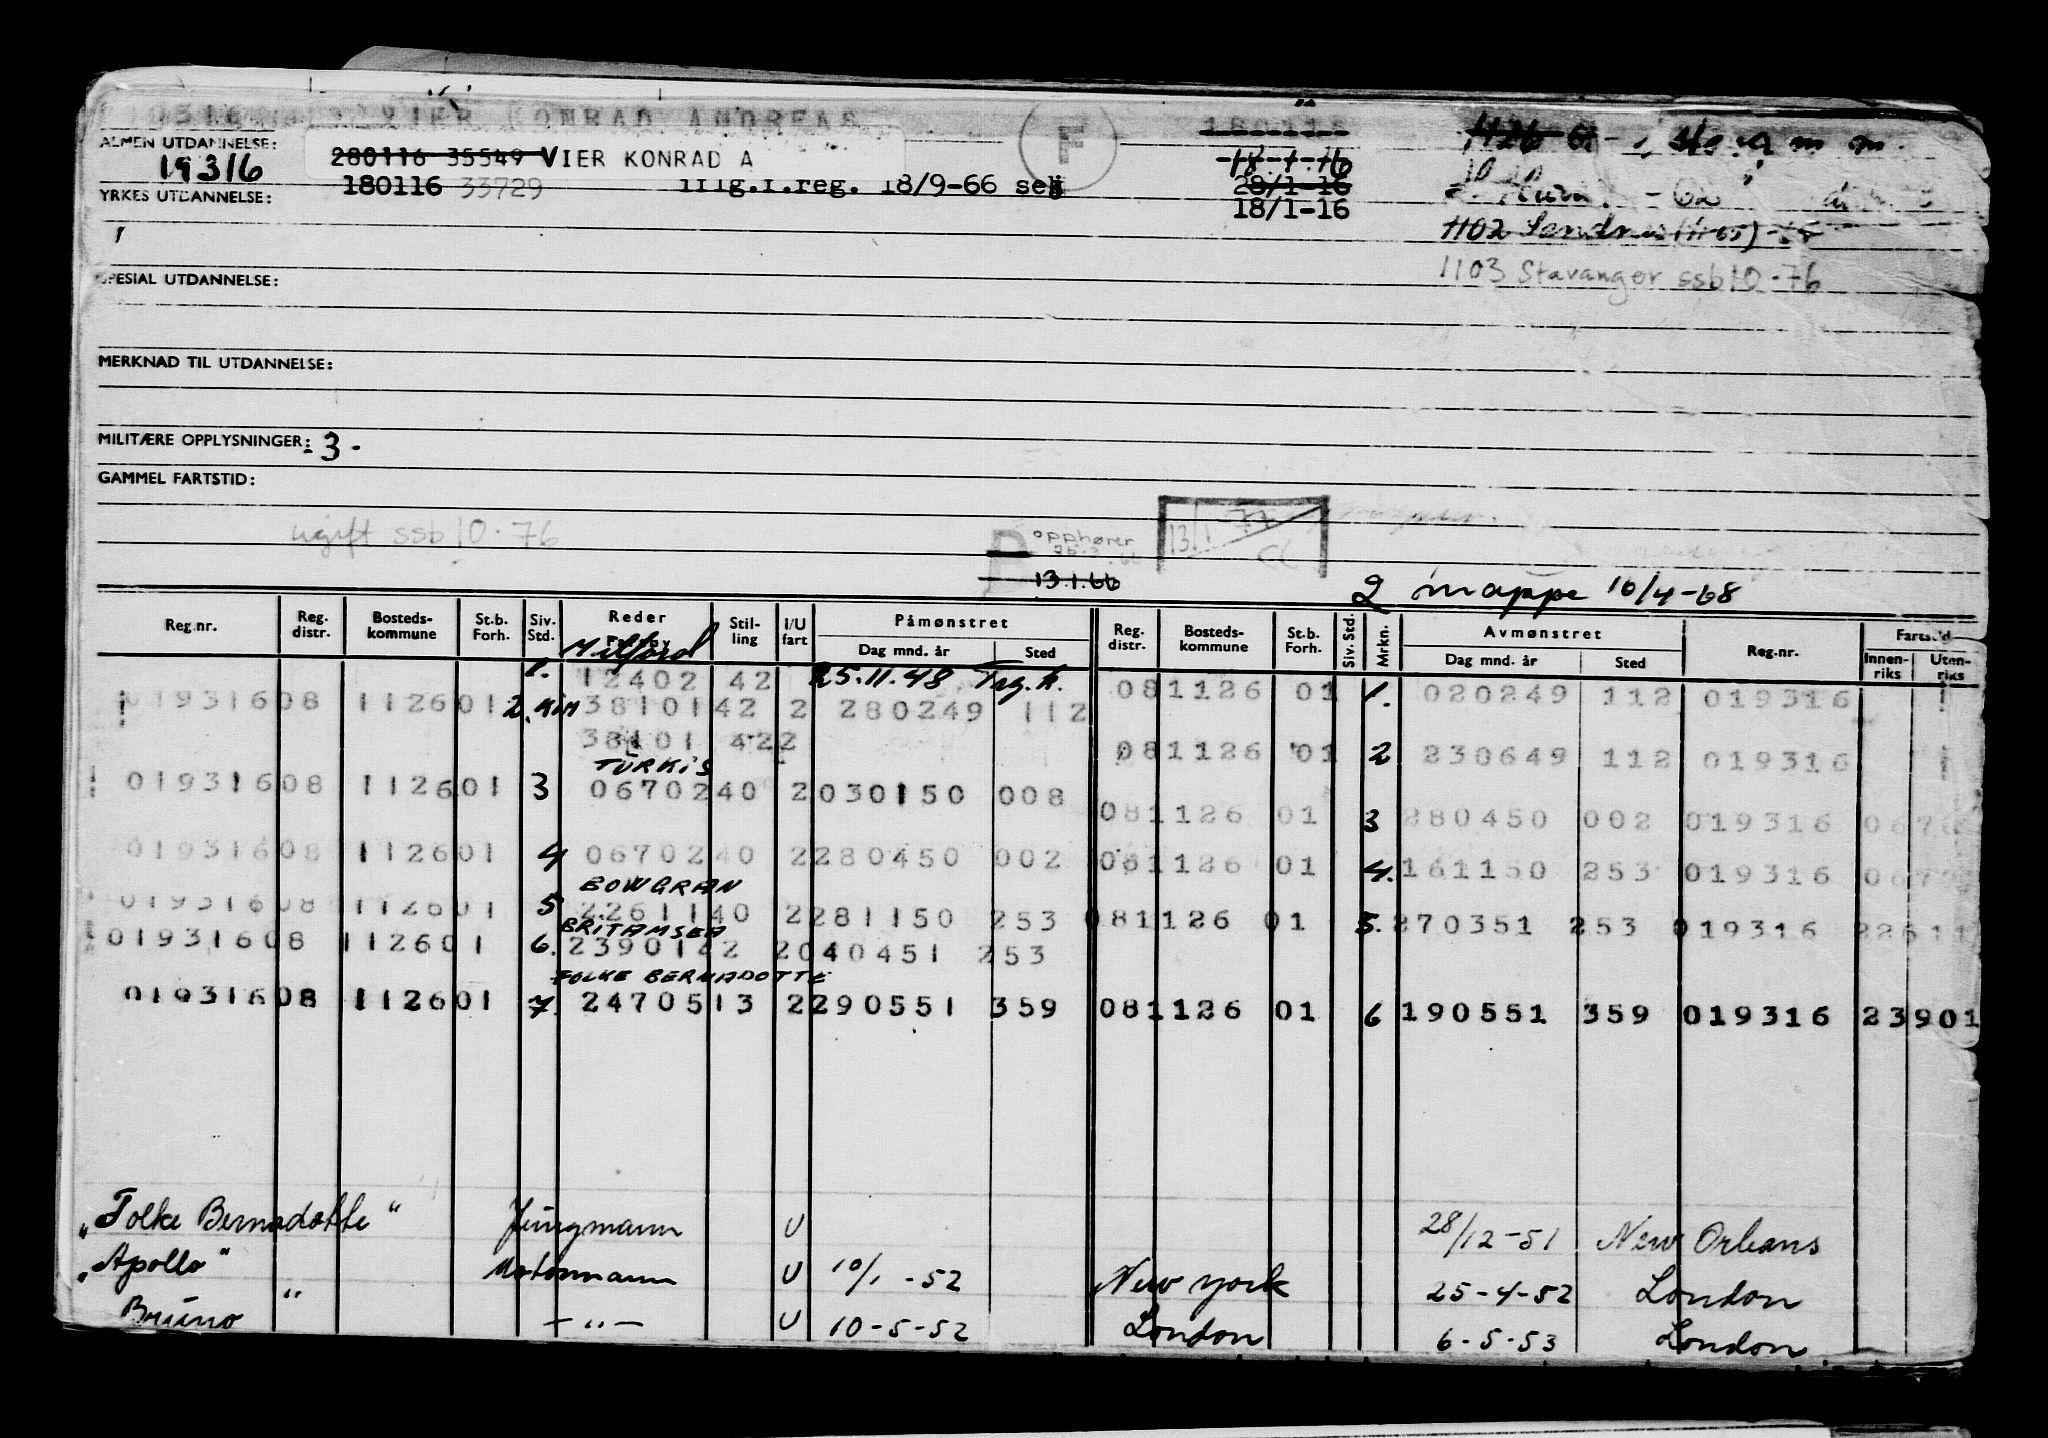 VIER KONRAD ANDREAS
F
ALMEN UTDANNELSE:
19316
280116 35549 VIER KONRAD A
180116 33729
tilg.f.reg. 18/9-66 sek
180116
18-1-16
28/1-16
18/1-16
1102 Sandnes (1-65)
1103 Stavanger ssb 10-76
YRKES UTDANNELSE:
SPESIAL UTDANNELSE:
MERKNAD TIL UTDANNELSE:
MILITÆRE OPPLYSNINGER: 3-
GAMMEL FARTSTID:
ugift ssb 10-76
opphører
13.1.66
2 mappe 10/4-68
Reg.nr. Reg. distr. Bosteds-kommune St.b. Forh. Siv. Std. Reder Stil-ling I/U fart Påmønstret Dag mnd. år Sted Reg. distr. Bosteds-kommune St.b. Forh. Siv. Std. Mrkn. Avmønstret Dag mnd. år Sted Reg.nr. Fartstid Innen-riks Uten-riks
Milford
1. 12402 42 25.11.48 081126 01 1. 020249 112 019316
01931608 112601 2. 38101 42 2 280249 112
38101 422 081126 01 2 230649 112 019316
TURKIS
01931608 112601 3 06702 40 2 030150 008
081126 01 3 280450 002 019316
01931608 112601 4 06702 40 2 280450 002 081126 01 4. 161150 253 019316
BOWGRAN
01931608 112601 5 22611 40 2 281150 253 081126 01 5. 270351 253 019316 22611
BRITAMSEA
01931608 112601 6. 23901 42 2 040451 253
FOLKE BERNADOTTE
01931608 112601 7. 24705 13 2 290551 359 081126 01 6 190551 359 019316 23901
"Folke Bernadotte" Jungmann U 28/12-51 New Orleans
"Apollo" Motormann U 10/1-52 New York 25-4-52 London
Bruno " - " - U 10-5-52 London 6-5-53 London